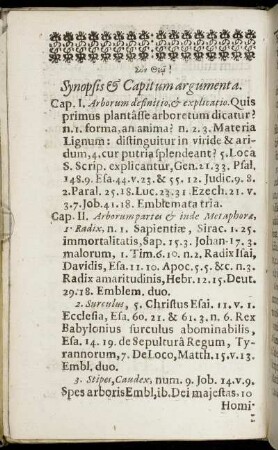 Σὺν Θεῷ!
Synopsis & Capitum argumenta.
Cap. I. Arborum definitio, & explicatio. Quis
primus plantâsse arboretum dicatur?
n. 1. forma, an anima? n. 2. 3. Materia
Lignum: distinguitur in viride & ari-
dum, 4. cur putria splendeant? 5. Loca
S. Scrip. explicantur, Gen. 21. 33. Psal.
148. 9. Esa. 44. v. 23. & 55. 12. Judic. 9. 8.
2. Paral. 25. 18. Luc. 23. 31. Ezech. 21. v.
3. 7. Job. 41. 18. Emblemata tria.
Cap. II. Arborum partes & inde Metaphoræ,
1. Radix, n. 1. Sapientiæ, Sirac. 1. 25.
immortalitatis, Sap. 15. 3. Johan. 17. 3.
malorum, 1. Tim. 6. 10. n. 2. Radix Isai,
Davidis, Esa. 11. 10. Apoc. 5. 5. &c. n. 3.
Radix amaritudinis, Hebr. 12. 15. Deut.
29. 18. Emblem. duo.
2. Surculus, 5. Christus Esai. 11. v. 1.
Ecclesia, Esa. 60. 21. & 61. 3. n. 6. Rex
Babylonius surculus abominabilis,
Esa. 14. 19. de Sepulturâ Regum, Ty-
rannorum, 7. De Loco, Matth. 15. v. 13.
Embl. duo.
3. Stipes, Caudex, num. 9. Job. 14. v. 9.
Spes arboris Embl, ib. Dei majestas. 10
Homi-